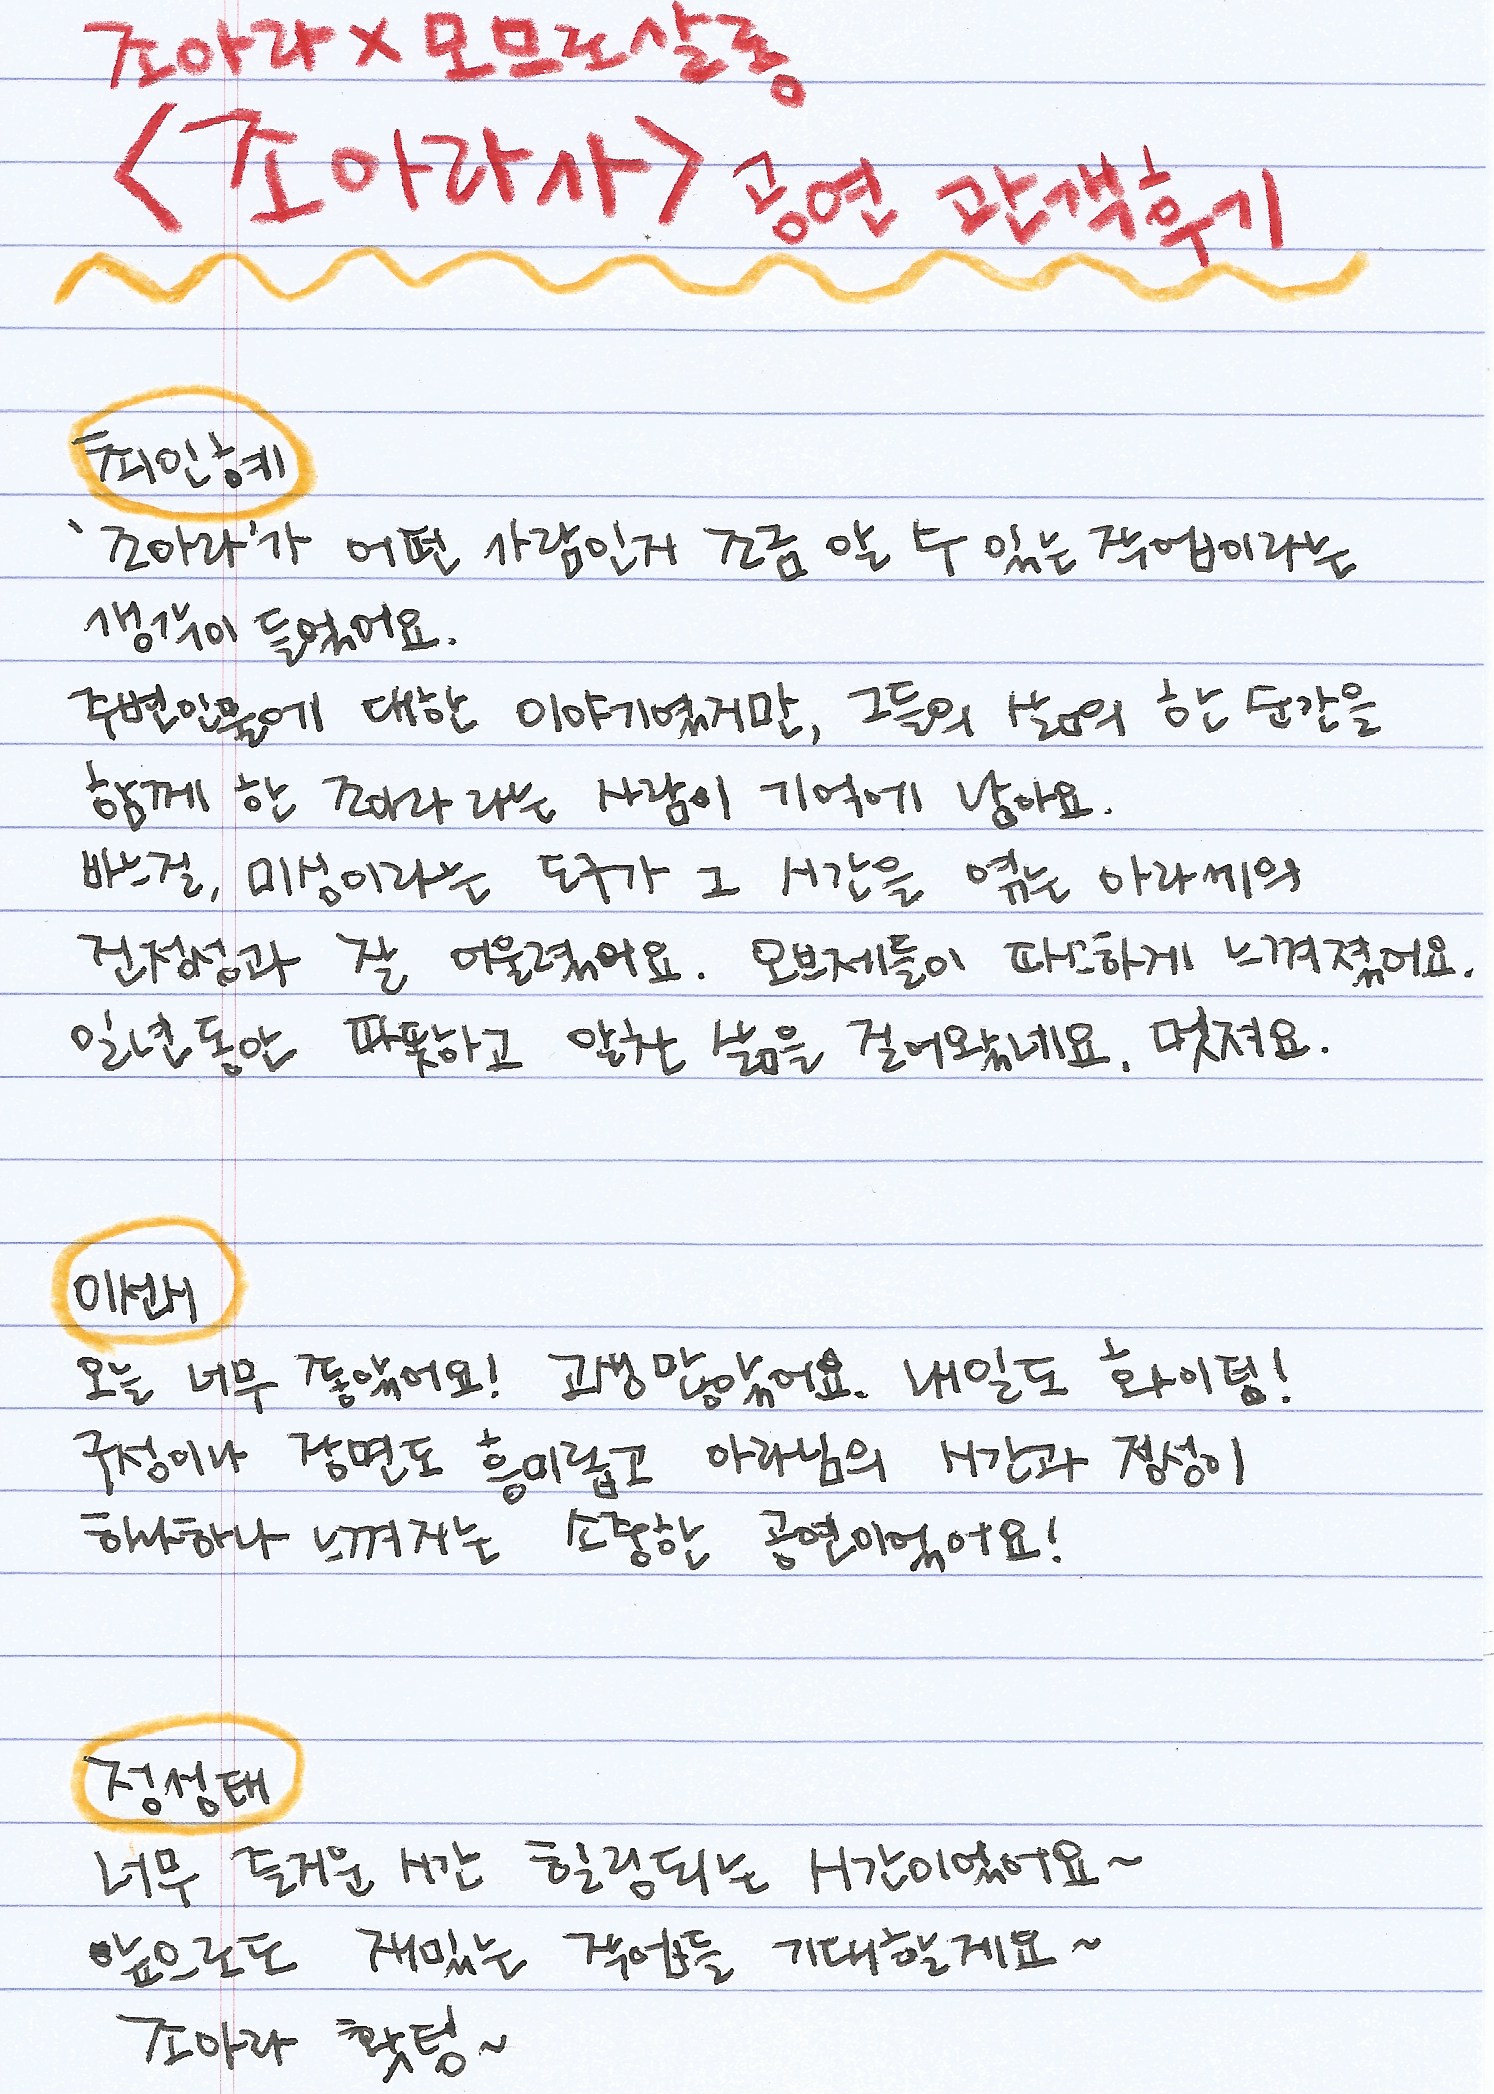 조아라×모므로살롱
<조아라사> 공연 관객후기
최인혜
'조아라'가 어떤 사람인지 조금 알 수 있는 작업이라는
생각이 들었어요.
주변인물에 대한 이야기였지만, 그들의 삶의 한 순간을
함께 한 조아라 라는 사람이 기억에 남아요.
바느질, 미싱이라는 도구가 그 시간을 엮는 아라씨의
진정성과 잘 어울렸어요. 오브제들이 따스하게 느껴졌어요.
일년동안 따뜻하고 알찬 삶을 걸어왔네요. 멋져요.
이선시
오늘 너무 좋았어요! 고생많았어요. 내일도 화이팅!
구성이나 장면도 흥미롭고 아라님의 시간과 정성이
하나하나 느껴지는 소중한 공연이었어요!
정성태
너무 즐거운 시간 힐링되는 시간이었어요~
앞으로도 재밌는 작업들 기대할게요~
조아라 홧팅~